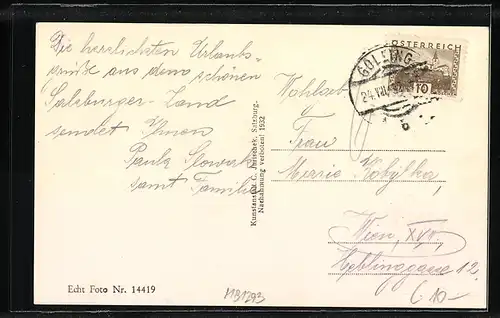 Die herzlichsten Urlaubs-
grüße aus dem schönen
Salzburger-Land
sendet Ihnen
Paula Slowak
samt Familie
Kunstanstalt C. Jurischek, Salzburg.
Nachahmung verboten! 1932
ÖSTERREICH
10
GOLLING
24.VIII.32
Wohlgeb
Frau
Marie Kobylka,
Wien, XVII,
Heblinggasse 12.
Echt Foto Nr. 14419
MB1293
10-